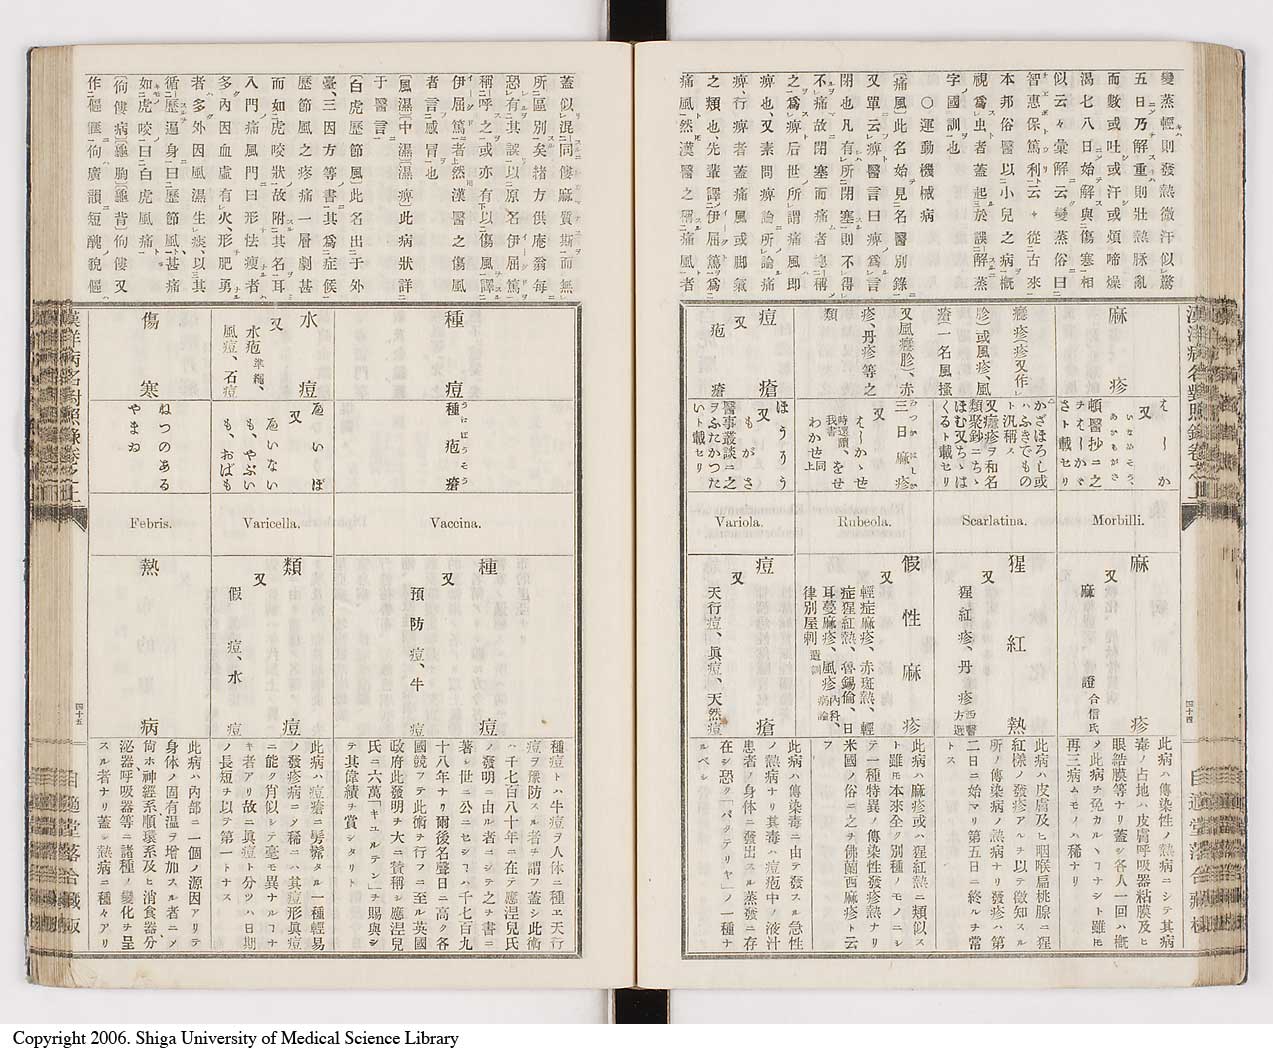 變蒸輕則發熱微汗似驚
五日乃解重則壯熱脉亂
而數或吐或汗或煩啼燥
渴七八日始解與傷寒相
似云々彙解云變蒸俗曰
智惠保篤利云々從古來
本邦俗醫以小兒之病概
視爲虫者蓋起於誤解蒸
字國訓也
〇運動機械病
痛風此名始見名醫別錄
又單云痺醫言曰痺爲言
閉也凡有所閉塞則不得
不痛故閉塞而痛者總稱
之爲痺后世所謂痛風即
痺也又素問痺論所論痛
痺、行痺者蓋痛風或脚氣
之類也先輩譯伊屈篤爲
痛風然漢醫之稱痛風者
麻疹
癮疹疹又作
胗)或風疹、風
瘡(一名風搔
又風癮胗)、赤
疹、丹疹等之
類
痘瘡
又
疱瘡
又
頓醫抄ニ之
さト載セリ
かざほろし或
ハふきでもの
ト汎稱ス
又癮疹ヲ和名
類聚鈔ニちゝ
ほむ又ちゝは
くるト載セリ
三日麻疹
又
わかせ同上
ほうさう
又
もがさ
醫事叢談ニ之
ヲふたかつた
いト載セリ
Morbilli.
Scarlatina.
Rubeola.
Variola.
麻疹
又
麻證合信氏
猩紅熱
又
猩紅疹、丹疹西醫方選
假性麻疹
又
輕症麻疹、赤斑熱、輕
症猩紅熱、魯錫倫、日
耳蔓麻疹、風疹內科病論、
律別屋剌
痘瘡
又
天行痘、眞痘、天然痘
此病ハ傳染性ノ熱病ニシテ其病
毒ノ占地ハ皮膚呼吸器粘膜及ヒ
眼結膜等ナリ蓋シ各人一回ハ概
ノ此病ヲ免カルヽヿナシト雖𪜈
再三病ムモノハ稀ナリ
此病ハ皮膚及ヒ咽喉扁桃腺ニ猩
紅樣ノ發疹アルヲ以テ徵知スル
所ノ傳染病ノ熱病ナリ發疹ハ第
二日ニ始マリ第五日ニ終ルヲ常
トス
此病ハ麻疹或ハ猩紅熱ニ類似ス
ト雖𪜈本來全ク別種ノモノニシ
テ一種特異ノ傳染性發疹熱ナリ
米國ノ俗ニ之ヲ佛蘭西麻疹ト云
フ
此病ハ傳染毒ニ由テ發スル急性
ノ熱病ナリ其毒ハ痘疱中ノ液汁
患者ノ身体ニ發出スル蒸發ニ存
在シ恐ク「バクテリヤ」ノ一種ナ
ルベシ
四十四
蓋似混同僂麻質斯而無
所區別矣緒方供庵翁每
恐有其誤以原名伊屈篤
稱呼之或亦有下以傷風譯
伊屈篤者上然漢醫之傷風
者言感冒也
〔風濕〕中濕〔濕痺此病狀詳
于醫言
〔白虎歷節風〕此名出于外
臺、三因方等書其爲症候
歷節風之疼痛一層劇甚
而如虎咬狀故附其名耳
入門痛風門曰形怯瘦者
多內因血虛有火、形肥勇
者多外因風濕生痰、以其
循歷遍身曰歷節風、甚痛
如虎咬曰白虎風痛
〔佝僂病〕〔龜胸〕〔龜背〕佝僂又
作傴僂佝廣韻短醜貌傴
種痘
水痘
又
水疱準繩、
風痘、石痘
傷寒
種疱瘡
うゑばうそう
ゐいぼ
又
ゐいない
も、やぶい
も、おばも
ねつのある
やまゐ
Vaccina.
Varicella.
Febris.
種痘
又
預防痘、牛痘
類痘
又
假痘、水痘
熱病
種痘トハ牛痘ヲ人体ニ種ヱ天行
痘ヲ豫防スル者ヲ謂フ蓋シ此術
ハ千七百八十年ニ在テ應涅兒氏
ノ發明ニ由ル者ニシテ之ヲ書ニ
著シ世ニ公ニセシヿハ千七百九
十八年ナリ爾後名聲日ニ高ク各
國競フテ此術ヲ行フニ至ル英國
政府此發明ヲ大ニ贊稱シ應涅兒
氏ニ六萬「ギユルテン」ヲ賜與シ
テ其偉績ヲ賞シタリト
此病ハ痘瘡ニ髣髴タル一種輕易
ノ發疹病ニノ稀ニハ其痘形眞痘
ニ能ク肖似シテ毫モ異ナルヿナ
キ者アリ故ニ眞痘ト分ツハ日期
ノ長短ヲ以テ第一トナス
此病ハ內部ニ一個ノ源因アリテ
身体ノ固有温ヲ增加スル者ニメ
尙ホ神經系順環系及ヒ消食器分
泌器呼吸器等ニ諸種ノ變化ヲ呈
スル者ナリ蓋シ熱病ニ種々アリ
漢洋病名對照錄卷之上
四十五
Copyright 2006. Shiga University of Medical Science Library